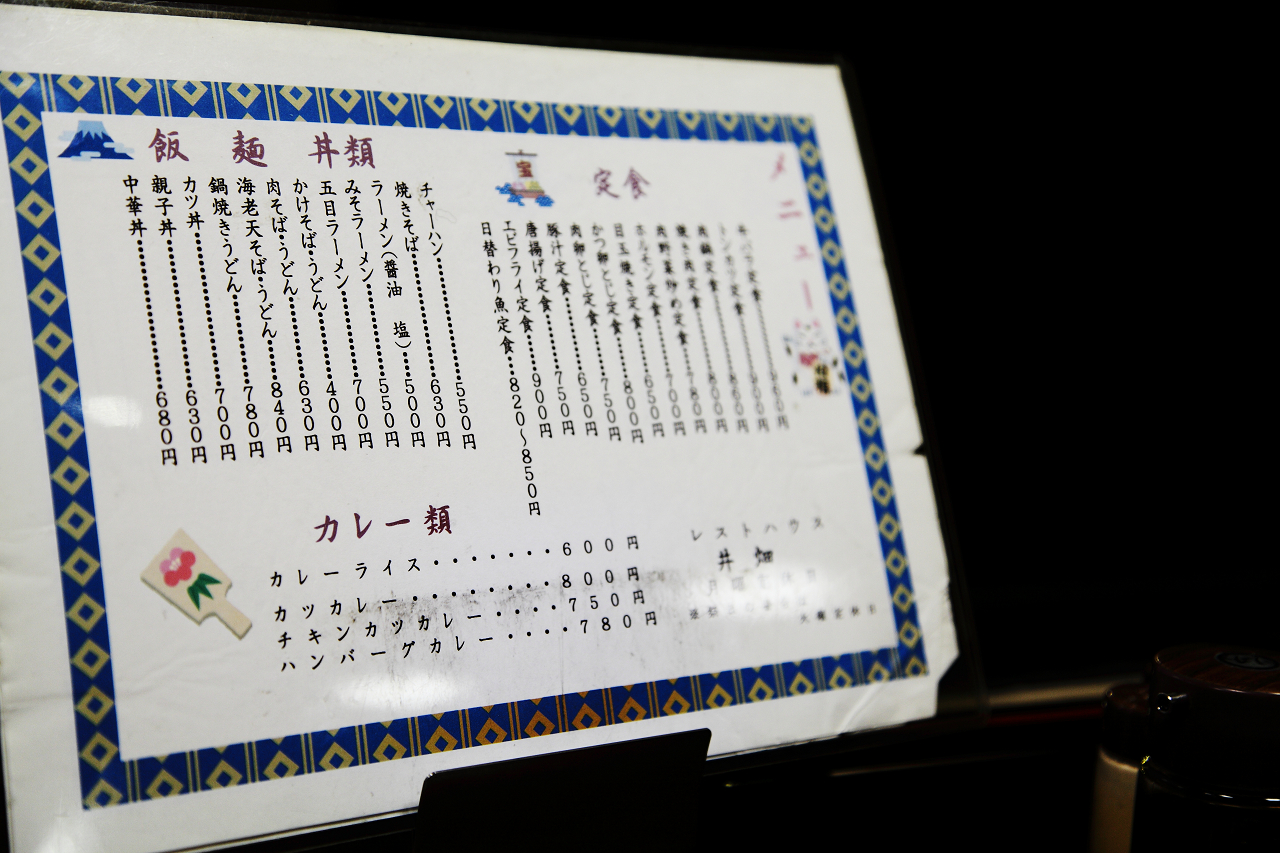 メニュー
定食
牛バラ定食………960円
トンカツ定食
肉鍋定食………860円
焼き肉定食………800円
肉野菜炒め定食……780円
ホルモン定食………700円
目玉焼き定食………650円
かつ卵とじ定食……800円
肉卵とじ定食………750円
豚汁定食…………650円
唐揚げ定食………750円
エビフライ定食……900円
日替わり魚定食…820～850円
飯　麺　丼類
チャーハン…………550円
焼きそば……………630円
ラーメン(醤油　塩)…500円
みそラーメン………550円
五目ラーメン………700円
かけそば・うどん……400円
肉そば・うどん………630円
海老天そば・うどん…840円
鍋焼きうどん………780円
カツ丼………………700円
親子丼………………630円
中華丼………………680円
カレー類
カレーライス・・・・・・・・600円
カツカレー・・・・・・・・・800円
チキンカツカレー・・・・750円
ハンバーグカレー・・・・780円
レストハウス
井畑